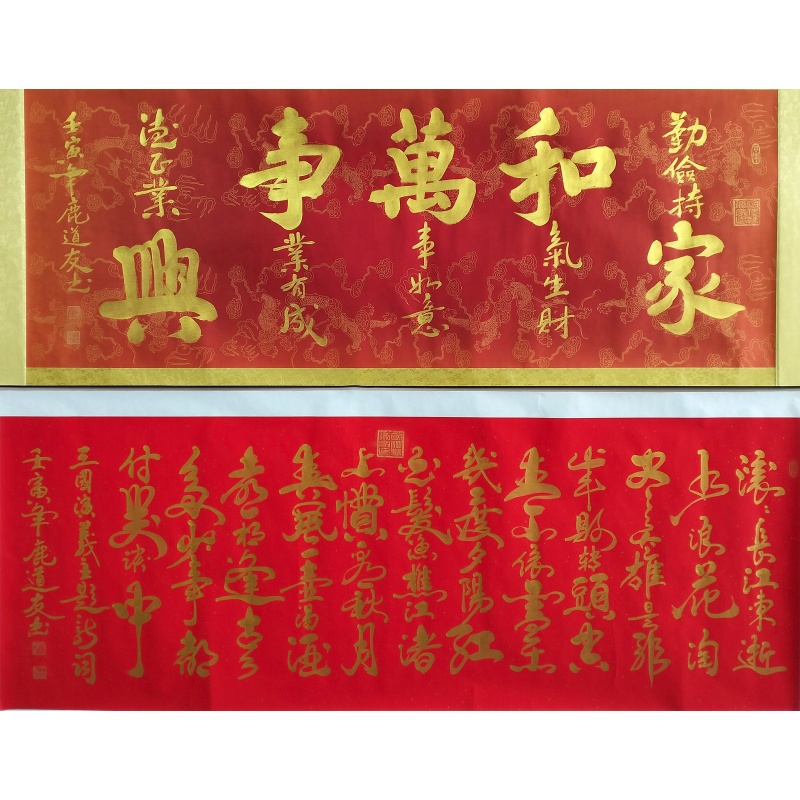 勤儉持家
和氣生財
萬事如意
事業有成
德正業興
壬寅年鹿道友书
滚〻長江東逝
水浪花淘
尽英雄是非
成敗转頭空
青山依舊在
几度夕陽紅
白髮漁樵江渚
上慣看秋月
春風一壺濁酒
喜相逢古今
多少事都
付笑谈中
三國演義主题歌词
壬寅年鹿道友书